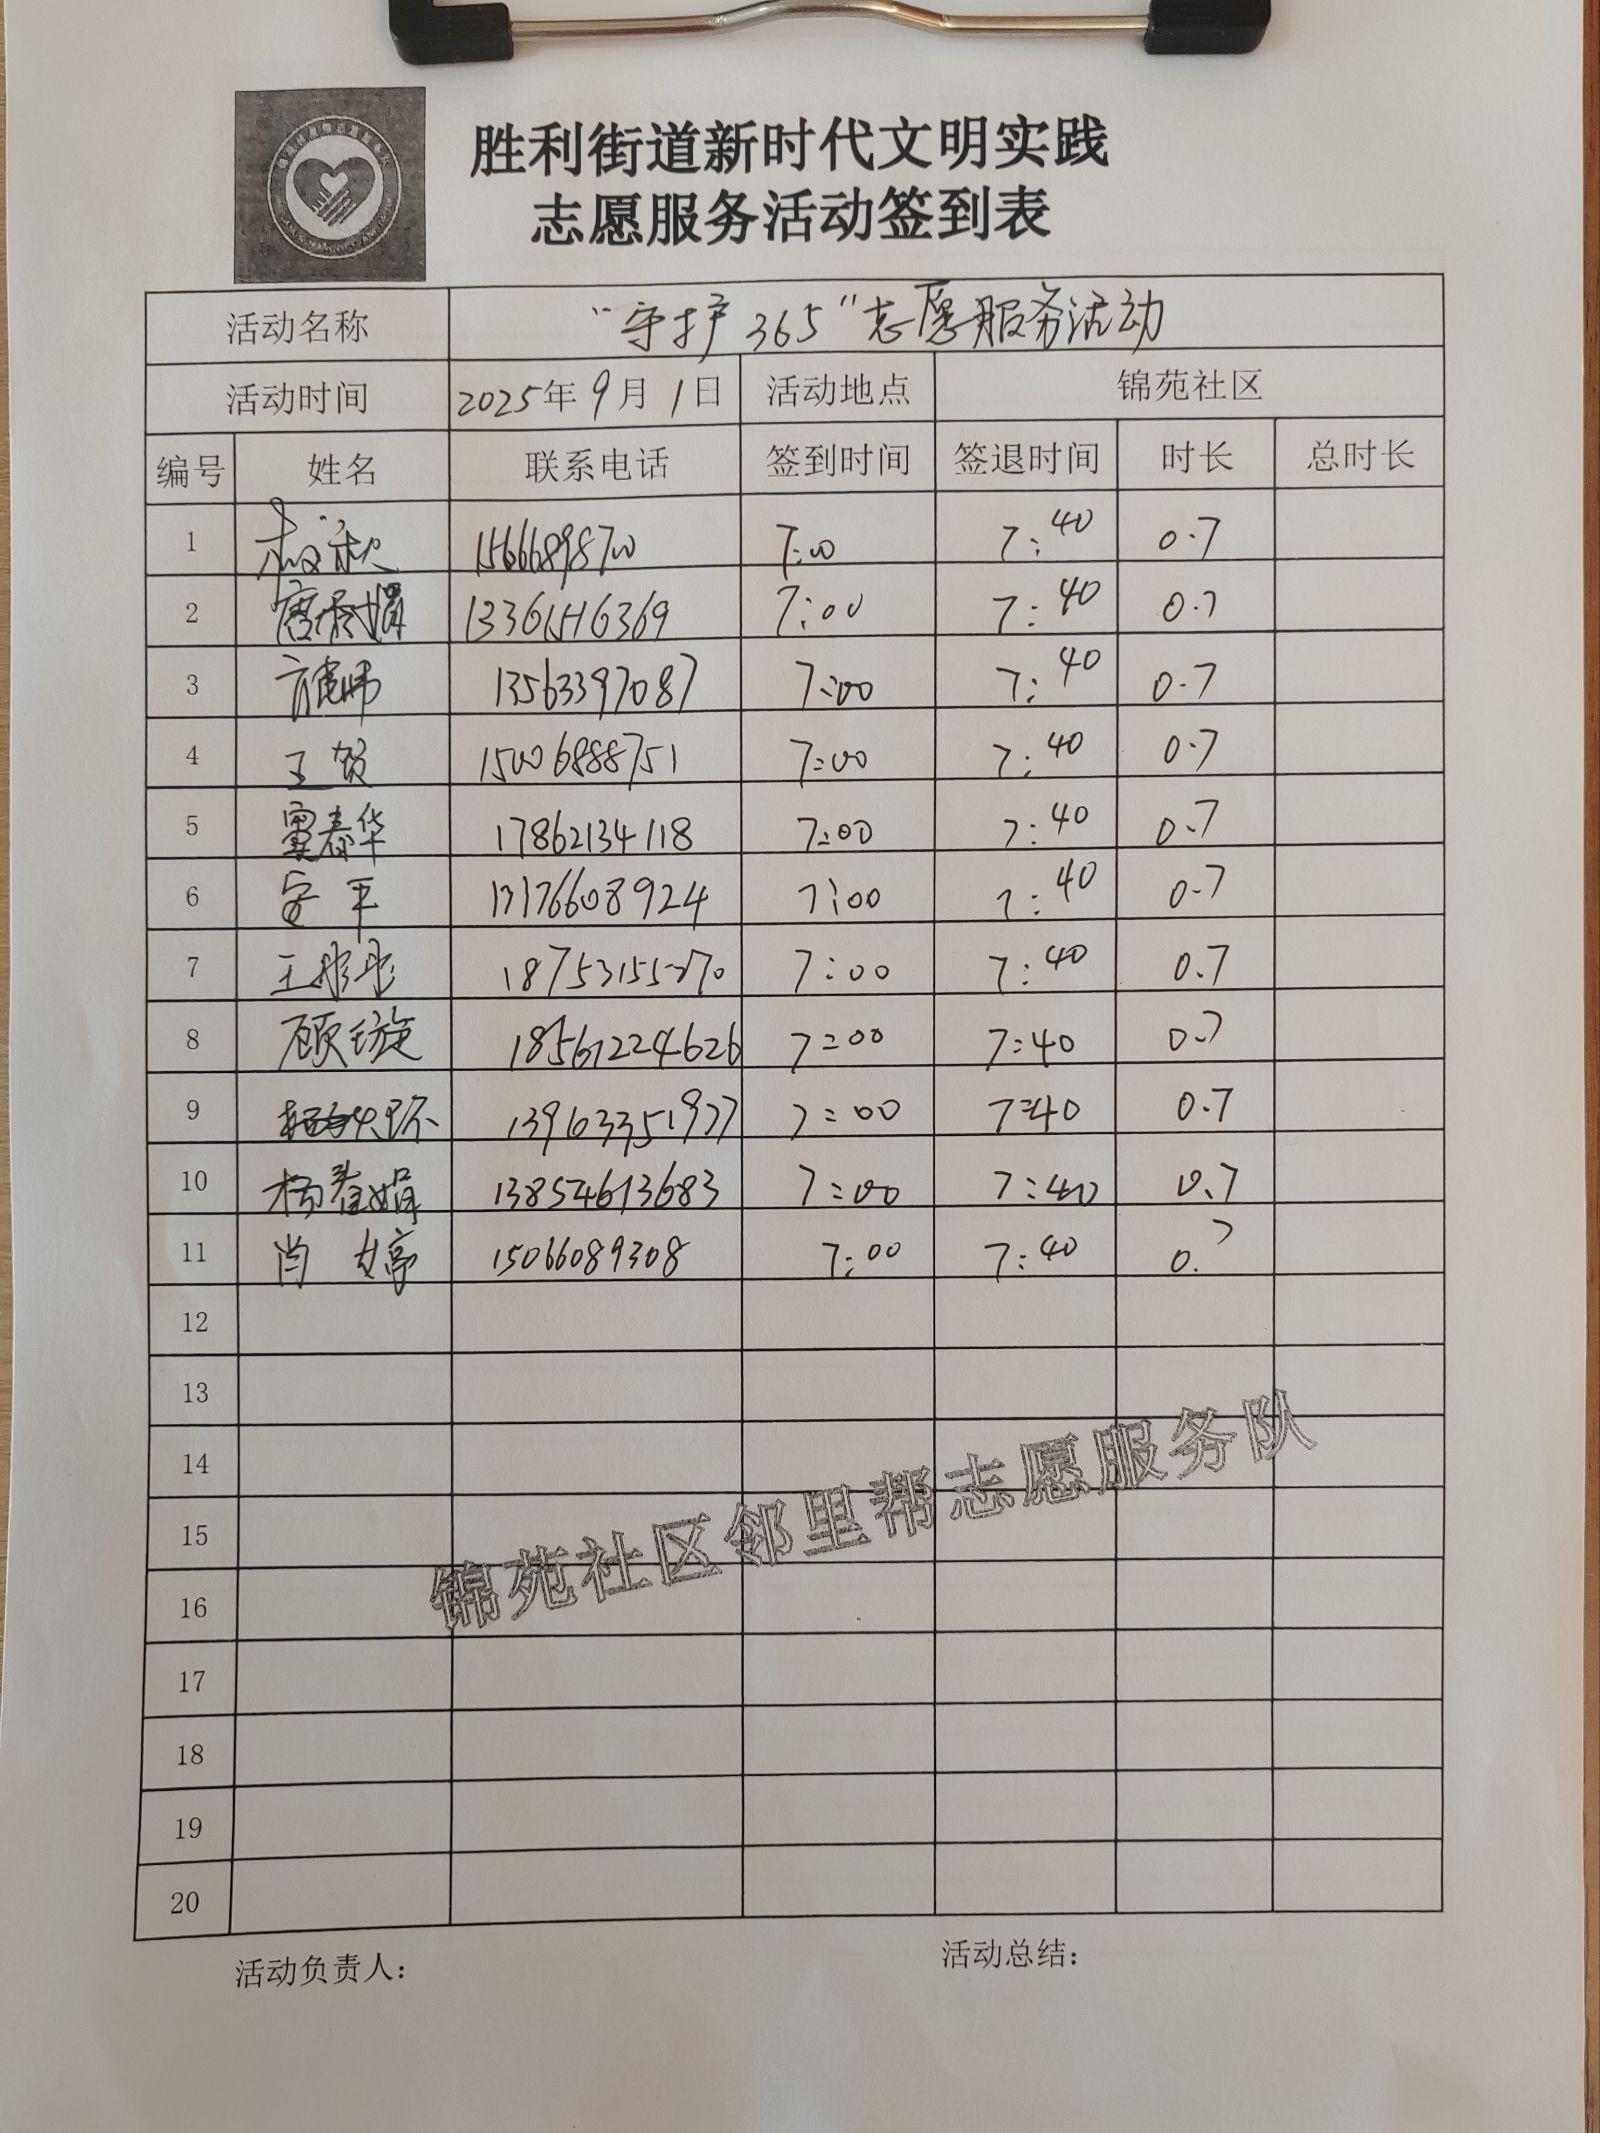 胜利街道新时代文明实践
志愿服务活动签到表
活动名称 “守护365”志愿服务活动
活动时间 2025年9月1日 活动地点 锦苑社区
编号 姓名 联系电话 签到时间 签退时间 时长 总时长
1 15666898700 7:00 7:40 0.7
2 13361516369 7:00 7:40 0.7
3 13563397087 7:00 7:40 0.7
4 王贺 15006888751 7:00 7:40 0.7
5 春华 17862134118 7:00 7:40 0.7
6 安平 13176608924 7:00 7:40 0.7
7 王彤彤 18753155270 7:00 7:40 0.7
8 顾璇 18561224626 7:00 7:40 0.7
9 13963351977 7:00 7:40 0.7
10 杨春娟 13854613683 7:00 7:40 0.7
11 肖婷 15066089308 7:00 7:40 0.7
12
13
14
15
16
17
18
19
20
锦苑社区邻里帮志愿服务队
活动负责人: 活动总结: